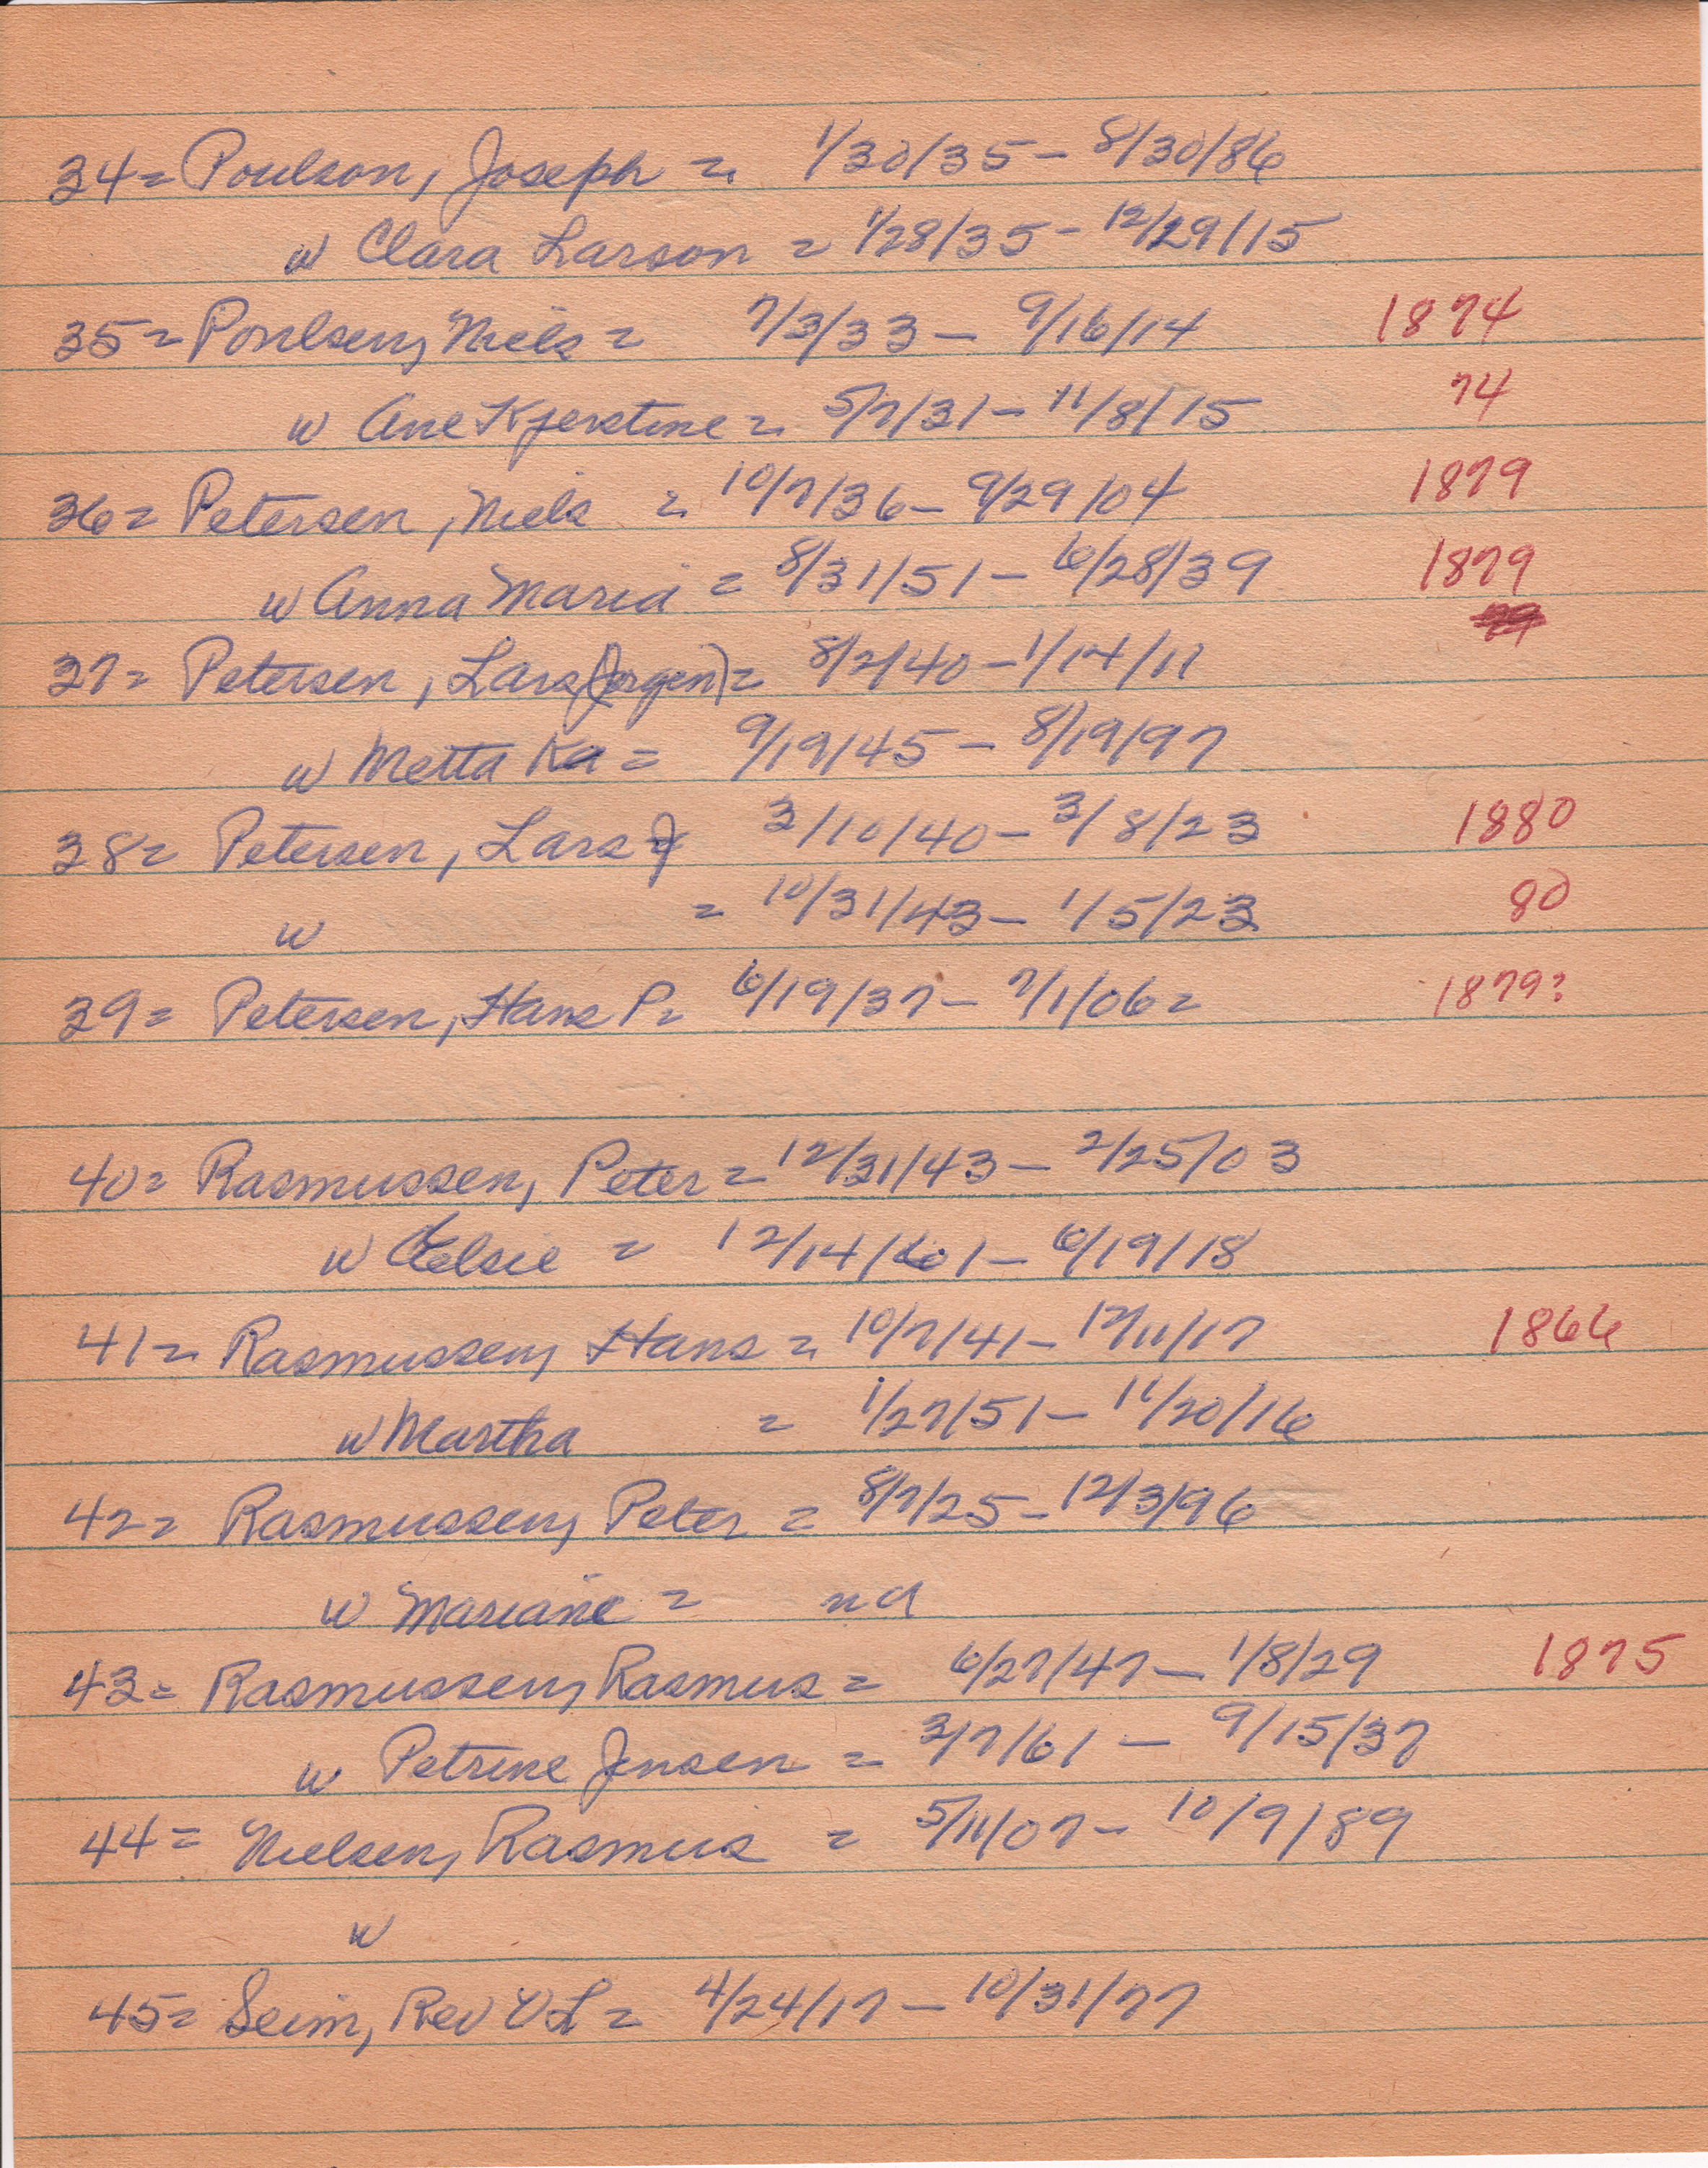 34= Poulson, Joseph = 1/30/35 - 8/30/86
w Clara Larson = 1/28/35 - 12/29/15
35= Poulsen, Niels = 7/3/33 - 9/16/14 1874
w Ane Kjerstine = 5/7/31 - 11/8/15 74
36= Petersen, Niels = 10/7/36 - 9/29/04 1879
w Anna Maria = 8/31/51 - 6/28/39 1879
37= Petersen, Lars (Jorgen) = 8/2/40 - 1/14/11
w Metta Ka = 9/19/45 - 8/19/97
38= Petersen, Lars J 3/10/40 - 3/8/23 1880
w = 10/31/43 - 1/5/23 80
39= Petersen, Hans P= 6/19/37 - 7/1/06= 1879?
40= Rasmussen, Peter = 12/31/43 - 2/25/03
w = 12/14/61 - 6/19/18
41= Rasmussen, Hans = 10/7/41 - 12/11/17 1866
w Martha = 1/27/51 - 11/20/16
42= Rasmussen, Peter = 8/7/25 - 12/3/96
w Mariane = nd
43= Rasmussen, Rasmus = 6/27/47 - 1/8/29 1875
w Petrine Jensen = 3/7/61 - 9/15/37
44= Nielsen, Rasmus = 5/11/07 - 10/9/89
w
45= Seim, Rev V L = 4/24/17 - 10/31/77